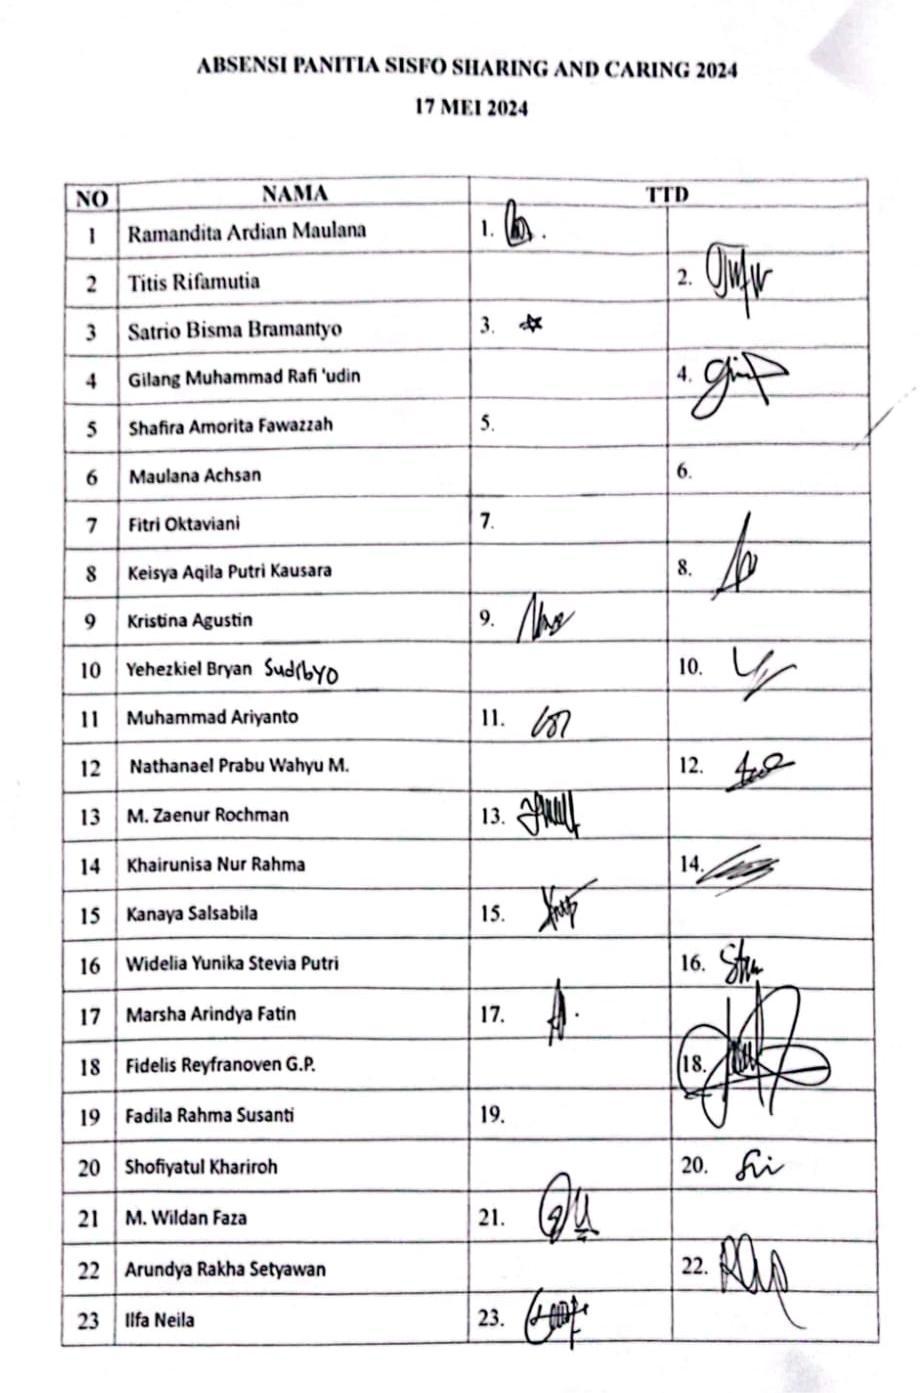 ABSENSI PANITIA SISFO SHARING AND CARING 2024
17 MEI 2024
NO NAMA TTD
1 Ramandita Ardian Maulana 1.
2 Titis Rifamutia 2.
3 Satrio Bisma Bramantyo 3.
4 Gilang Muhammad Rafi 'udin 4.
5 Shafira Amorita Fawazzah 5.
6 Maulana Achsan 6.
7 Fitri Oktaviani 7.
8 Keisya Aqila Putri Kausara 8.
9 Kristina Agustin 9.
10 Yehezkiel Bryan 10.
11 Muhammad Ariyanto 11.
12 Nathanael Prabu Wahyu M. 12.
13 M. Zaenur Rochman 13.
14 Khairunisa Nur Rahma 14.
15 Kanaya Salsabila 15.
16 Widelia Yunika Stevia Putri 16.
17 Marsha Arindya Fatin 17.
18 Fidelis Reyfranoven G.P. 18.
19 Fadila Rahma Susanti 19.
20 Shofiyatul Khariroh 20.
21 M. Wildan Faza 21.
22 Arundya Rakha Setyawan 22.
23 Ilfa Neila 23.